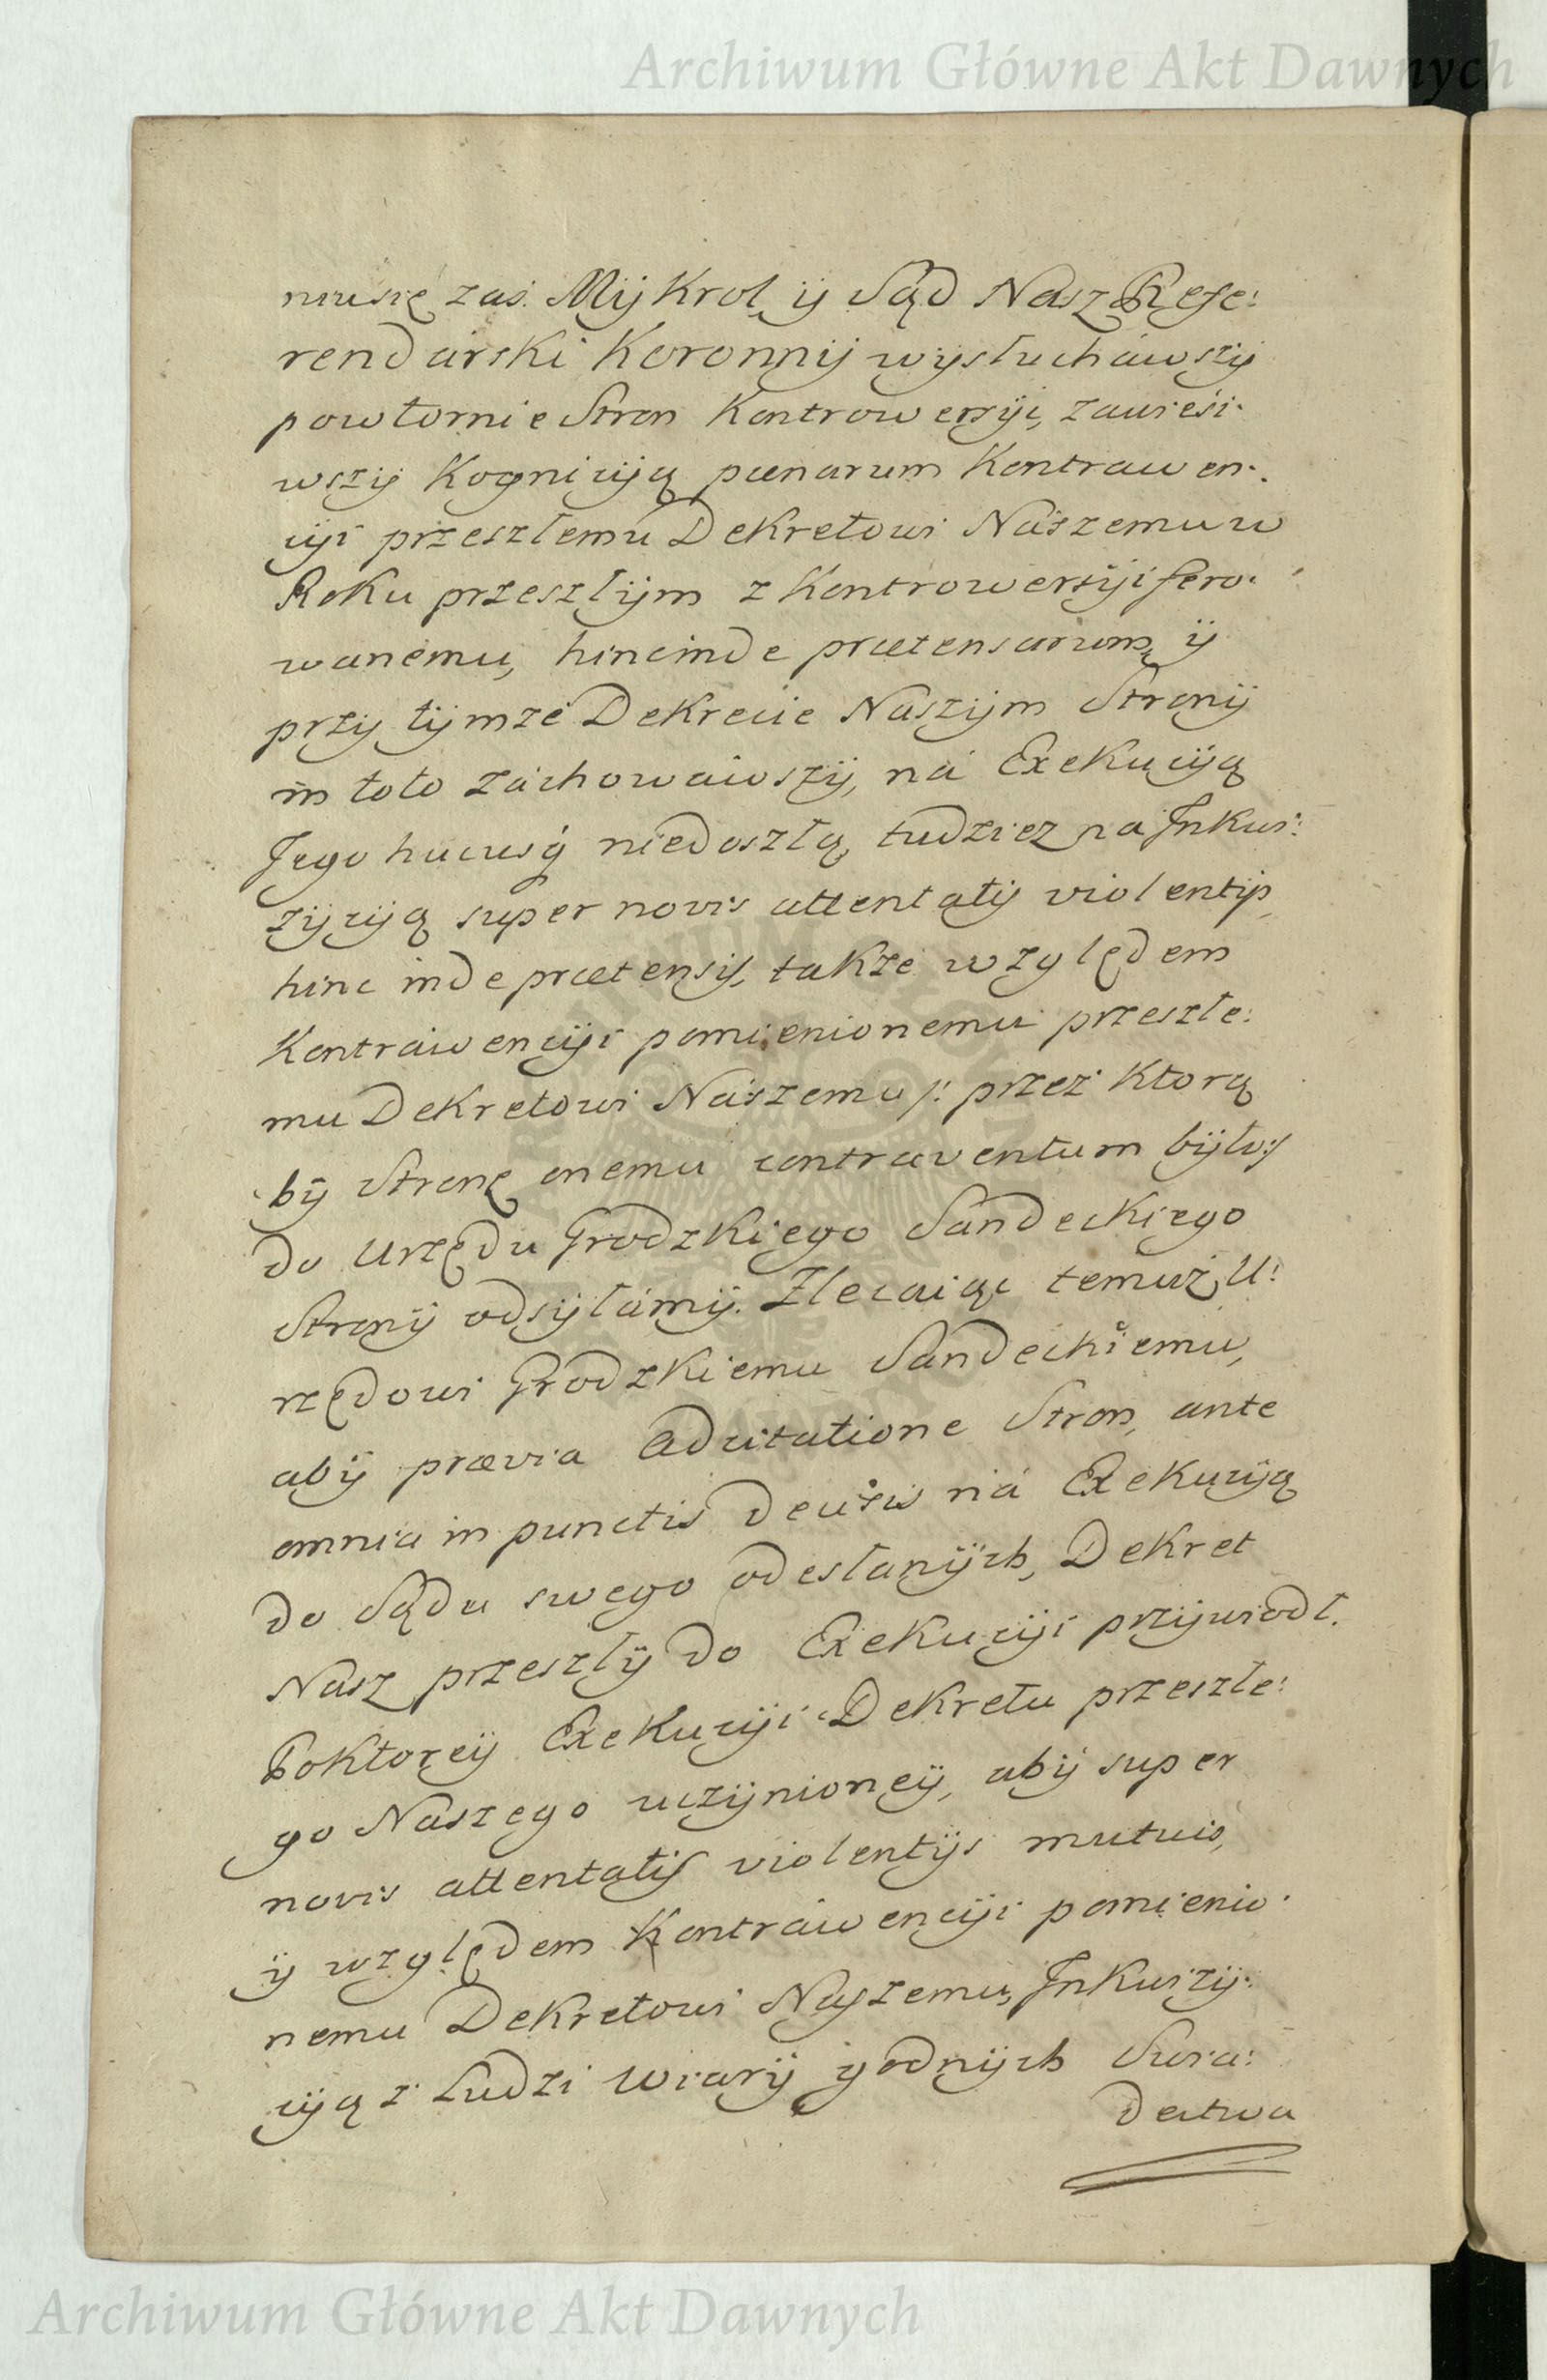 Archiwum Główne Akt Dawnych
niusię zaś. My Krol y Sąd Nasz Refe:
rendarski Koronny wysłuchawszy
powtornie Stron Kontrowersyi, zawiesi:
wszy Kognicyą pænarum Kontrawen:
cyi przeszłemu Dekretowi Naszemu w
Roku przeszłym z Kontrowersyi fero:
wanemu, hincinde prætensarum, y
przy tymże Dekrecie Naszym Strony
in toto zachowawszy, na Exekucyą
Jego hucusq niedoszłą, tudziez na Inkwi:
zycyą super novis attentatis violentijs
hinc inde prætensis, także względem
Kontrawencyi pomienionemu przeszłe:
mu Dekretowi Naszemu /: przez ktorą
by Stronę onemu contraventum było :/
do Urzędu Grodzkiego Sandeckiego
Strony odsyłamy. Zlecaiąc temuż U:
rzędowi Grodzkiemu Sandeckiemu,
aby prævia Adcitatione Stron, ante
omnia in punctis decisis na Exekucyą
do Sądu swego odesłanych, Dekret
Nasz przeszły do Exekucyi przywiodł.
Po ktorey Exekucyi Dekretu przeszłe:
go Naszego uczynioney, aby super
novis attentatis violentijs mutuis,
y względem Kontrawencyi pomienio:
nemu Dekretowi Naszemu, Inkwizy:
cyą z Ludzi wiary godnych Swia:
dectwa
Archiwum Główne Akt Dawnych